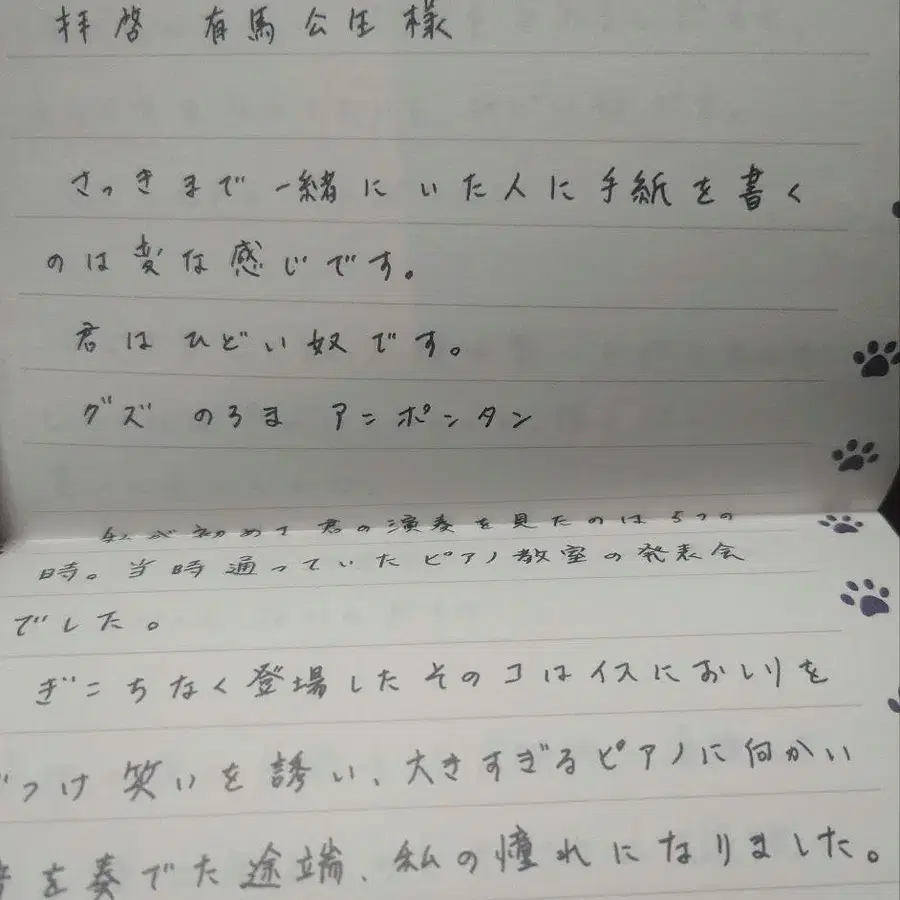 拝啓 有馬公生様
さっきまで一緒にいた人に手紙を書く
のは変な感じです。
君はひどい奴です。
グズ のろま アンポンタン
私が初めて君の演奏を見たのは5つの
時。当時通っていたピアノ教室の発表会
でした。
ぎこちなく登場したそのコはイスにおしりを
つけ笑いを誘い、大きすぎるピアノに向かい
を奏でた途端、私の憧れになりました。